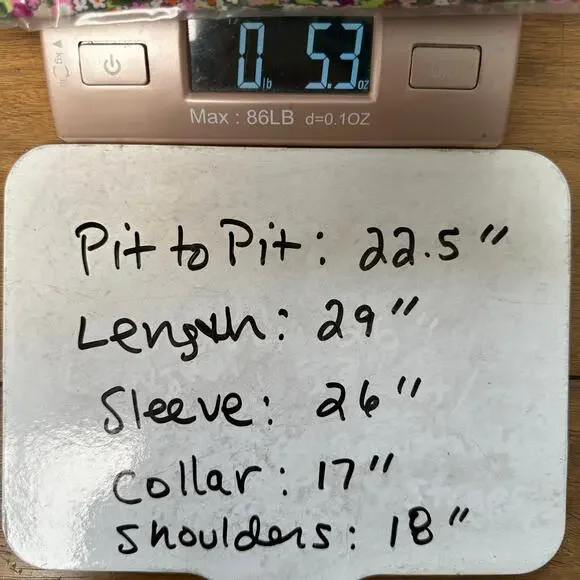 0 lb 5.3 oz
Max : 86LB d=0.1OZ
Pit to Pit : 22.5"
Length : 29"
Sleeve : 26"
Collar : 17"
Shoulders : 18"